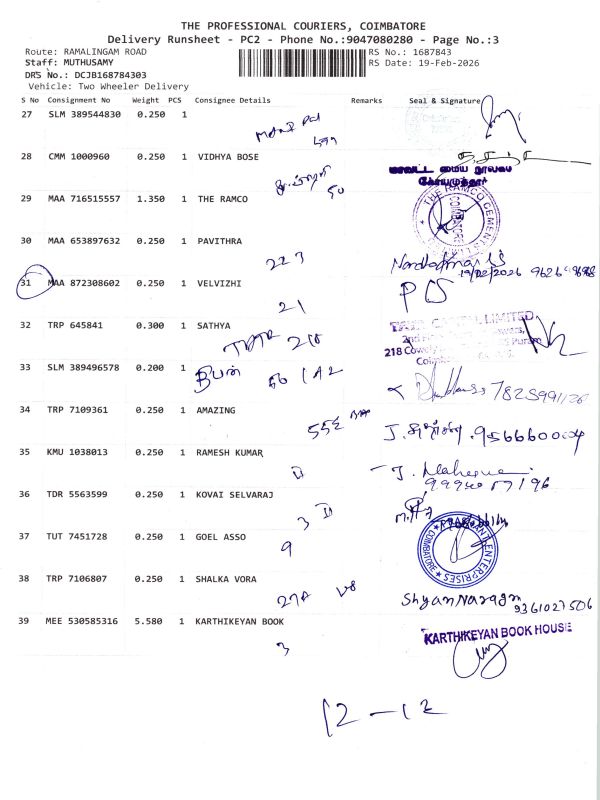 THE PROFESSIONAL COURIERS, COIMBATORE
Delivery Runsheet - PC2 - Phone No.:9047080280 - Page No.:3
Route: RAMALINGAM ROAD RS No.: 1687843
Staff: MUTHUSAMY RS Date: 19-Feb-2026
DRS No.: DCJB168784303
Vehicle: Two Wheeler Delivery
S No Consignment No Weight PCS Consignee Details Remarks Seal & Signature
27 SLM 389544830 0.250 1
28 CMM 1000960 0.250 1 VIDHYA BOSE
மாவட்ட மைய நூலகம்
கோயமுத்தூர்
50
29 MAA 716515557 1.350 1 THE RAMCO
THE RAMCO CEMENT
COIMBATORE
30 MAA 653897632 0.250 1 PAVITHRA
223
19/02/2026
31 MAA 872308602 0.250 1 VELVIZHI
21
32 TRP 645841 0.300 1 SATHYA
CAPITAL LIMITED
TATA 218
33 SLM 389496578 0.200 1
34 TRP 7109361 0.250 1 AMAZING
35 KMU 1038013 0.250 1 RAMESH KUMAR
II
36 TDR 5563599 0.250 1 KOVAI SELVARAJ
3 II
37 TUT 7451728 0.250 1 GOEL ASSO
ENTERPRISES
COIMBATORE
9
38 TRP 7106807 0.250 1 SHALKA VORA
27A V8
9361027506
39 MEE 530585316 5.580 1 KARTHIKEYAN BOOK
KARTHIKEYAN BOOK HOUSE
3
12-12